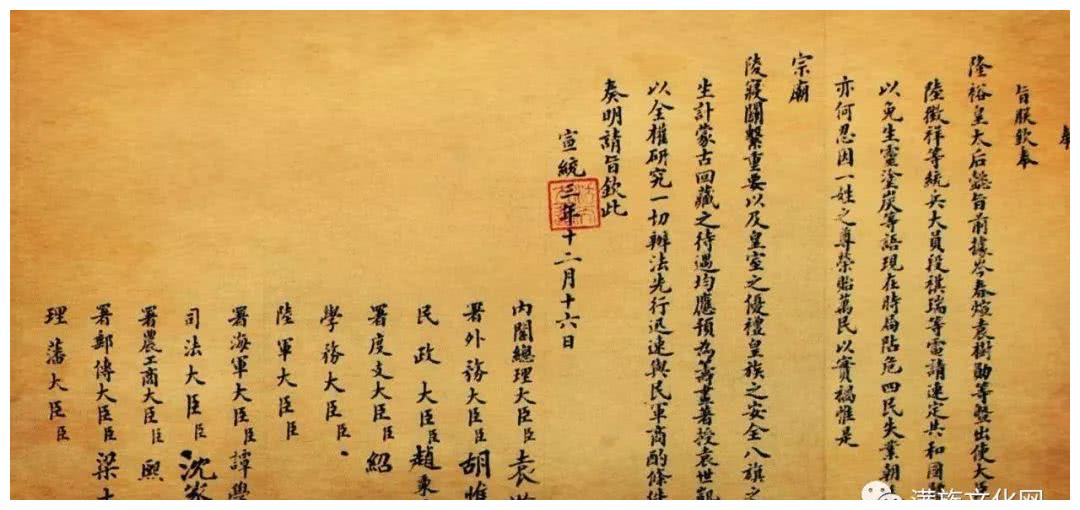 旨朕欽奉
隆裕皇太后懿旨前據岑春煊袁樹勛等暨出使大臣
陸徵祥等統兵大員段祺瑞等電請速定共和國
以免生靈塗炭等語現在時局阽危四民失業朝
亦何忍因一姓之尊榮貽萬民以實禍惟是
宗廟
陵寢關繫重要以及皇室之優禮皇族之安全八旗之
生計蒙古回藏之待遇均應預為籌畫著授袁世凱
以全權研究一切辦法先行迅速與民軍商酌條件
奏明請旨欽此
宣統三年十二月十六日
內閣總理大臣臣袁世
署外務大臣臣胡惟
民政大臣臣趙秉
署度支大臣臣紹
學務大臣臣
陸軍大臣臣
署海軍大臣臣譚學
司法大臣臣沈家
署農工商大臣臣熙
署郵傳大臣臣梁士
理藩大臣臣
滿族文化网